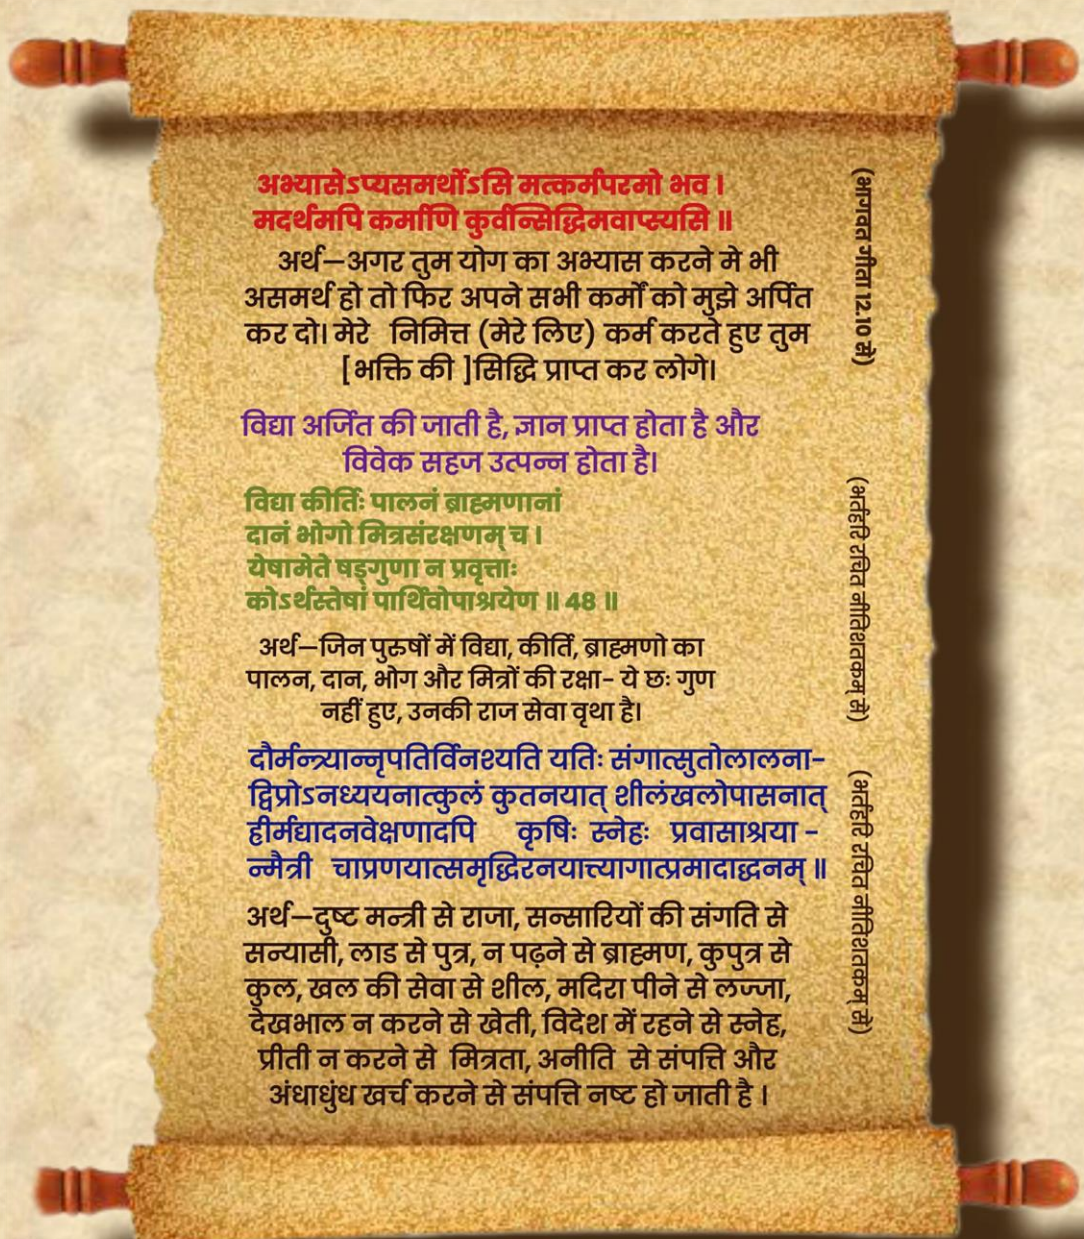 अभ्यासेऽप्यसमर्थोऽसि मत्कर्मपरमो भव ।
मदर्थमपि कर्माणि कुर्वन्सिद्धिमवाप्स्यसि ॥
अर्थ—अगर तुम योग का अभ्यास करने मे भी
असमर्थ हो तो फिर अपने सभी कर्मों को मुझे अर्पित
कर दो। मेरे निमित्त (मेरे लिए) कर्म करते हुए तुम
[भक्ति की ]सिद्धि प्राप्त कर लोगे।
(भागवत गीता 12.10 से)
विद्या अर्जित की जाती है, ज्ञान प्राप्त होता है और
विवेक सहज उत्पन्न होता है।
विद्या कीर्तिः पालनं ब्राह्मणानां
दानं भोगो मित्रसंरक्षणम् च ।
येषामेते षड्गुणा न प्रवृत्ताः
कोऽर्थस्तेषां पार्थिवोपाश्रयेण ॥ 48 ॥
अर्थ—जिन पुरुषों में विद्या, कीर्ति, ब्राह्मणो का
पालन, दान, भोग और मित्रों की रक्षा- ये छः गुण
नहीं हुए, उनकी राज सेवा वृथा है।
(भर्तहरि रचित नीतिशतकम् से)
दौर्मन्त्र्यान्नृपतिर्विनश्यति यतिः संगात्सुतोलालना-
द्विप्रोऽनध्ययनात्कुलं कुतनयात् शीलंखलोपासनात्
ह्रीर्मद्यादनवेक्षणादपि कृषिः स्नेहः प्रवासाश्रया -
न्मैत्री चाप्रणयात्समृद्धिरनयात्त्यागात्प्रमादाद्धनम् ॥
अर्थ—दुष्ट मन्त्री से राजा, सन्सारियों की संगति से
सन्यासी, लाड से पुत्र, न पढ़ने से ब्राह्मण, कुपुत्र से
कुल, खल की सेवा से शील, मदिरा पीने से लज्जा,
देखभाल न करने से खेती, विदेश में रहने से स्नेह,
प्रीती न करने से मित्रता, अनीति से संपत्ति और
अंधाधुंध खर्च करने से संपत्ति नष्ट हो जाती है ।
(भर्तहरि रचित नीतिशतकम् से)